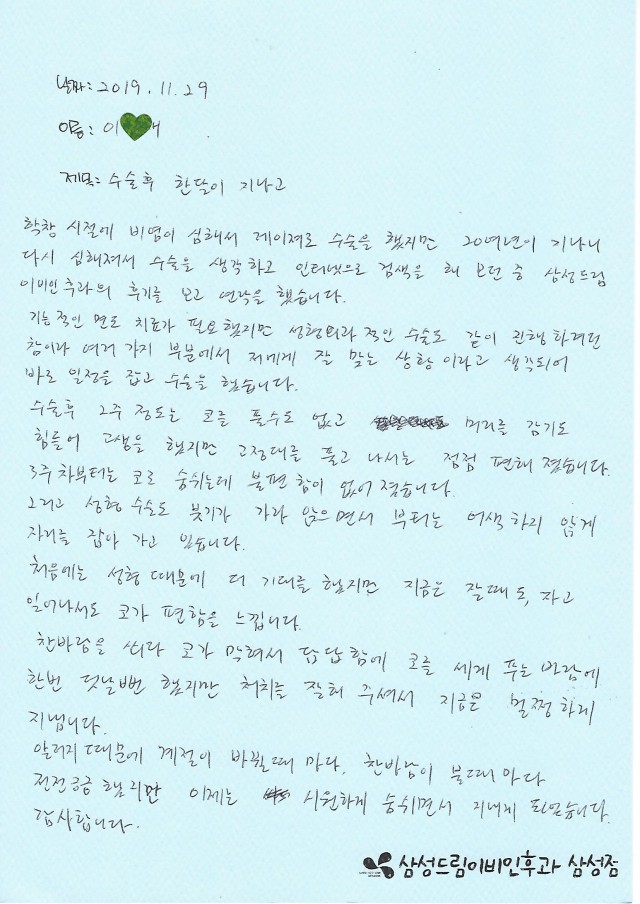 날짜: 2019. 11. 29
이름: 이 애
제목: 수술후 한달이 지나고
학창 시절에 비염이 심해서 레이져로 수술을 했지만 20여년이 지나니
다시 심해져서 수술을 생각하고 인터넷으로 검색을 해 보던 중 삼성드림
이비인후과의 후기를 보고 연락을 했습니다.
기능적인 면도 치료가 필요했지만 성형외과적인 수술도 같이 진행하려던
참이라 여러 가지 부분에서 저에게 잘 맞는 상황이라고 생각되어
바로 일정을 잡고 수술을 했습니다.
수술후 2주 정도는 코를 풀수도 없고 머리를 감기도
힘들어 고생을 했지만 고정대를 풀고 나서는 점점 편해 졌습니다.
3주차부터는 코로 숨쉬는데 불편함이 없어졌습니다.
그리고 성형 수술도 붓기가 가라 앉으면서 부터는 어색하지 않게
자리를 잡아 가고 있습니다.
처음에는 성형 때문에 더 기대를 했지만 지금은 잘때도, 자고
일어나서도 코가 편함을 느낍니다.
찬바람을 쐬다 코가 막혀서 답답함에 코를 세게 푸는 바람에
한번 덧날뻔 했지만 처치를 잘해 주셔서 지금은 멀쩡하게
지냅니다.
알러지 때문에 계절이 바뀔때 마다, 찬바람이 불때 마다
전전긍긍 했지만 이제는 시원하게 숨쉬면서 지내게 되었습니다.
감사합니다.
삼성드림이비인후과 삼성점